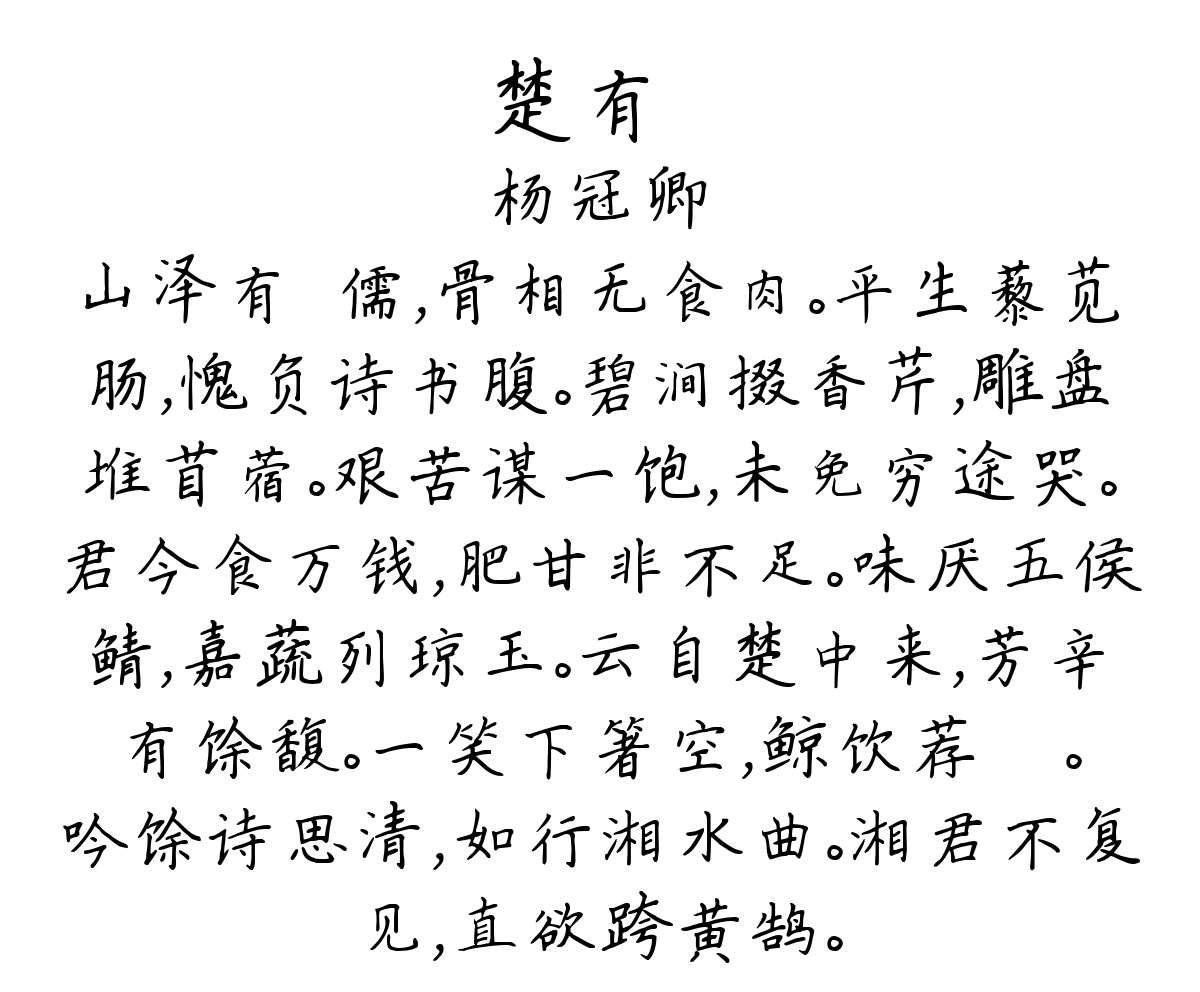 楚有
杨冠卿
山泽有 儒,骨相无食肉。平生藜苋
肠,愧负诗书腹。碧涧掇香芹,雕盘
堆苜蓿。艰苦谋一饱,未免穷途哭。
君今食万钱,肥甘非不足。味厌五侯
鲭,嘉蔬列琼玉。云自楚中来,芳辛
有馀馥。一笑下箸空,鲸饮荐 。
吟馀诗思清,如行湘水曲。湘君不复
见,直欲跨黄鹄。